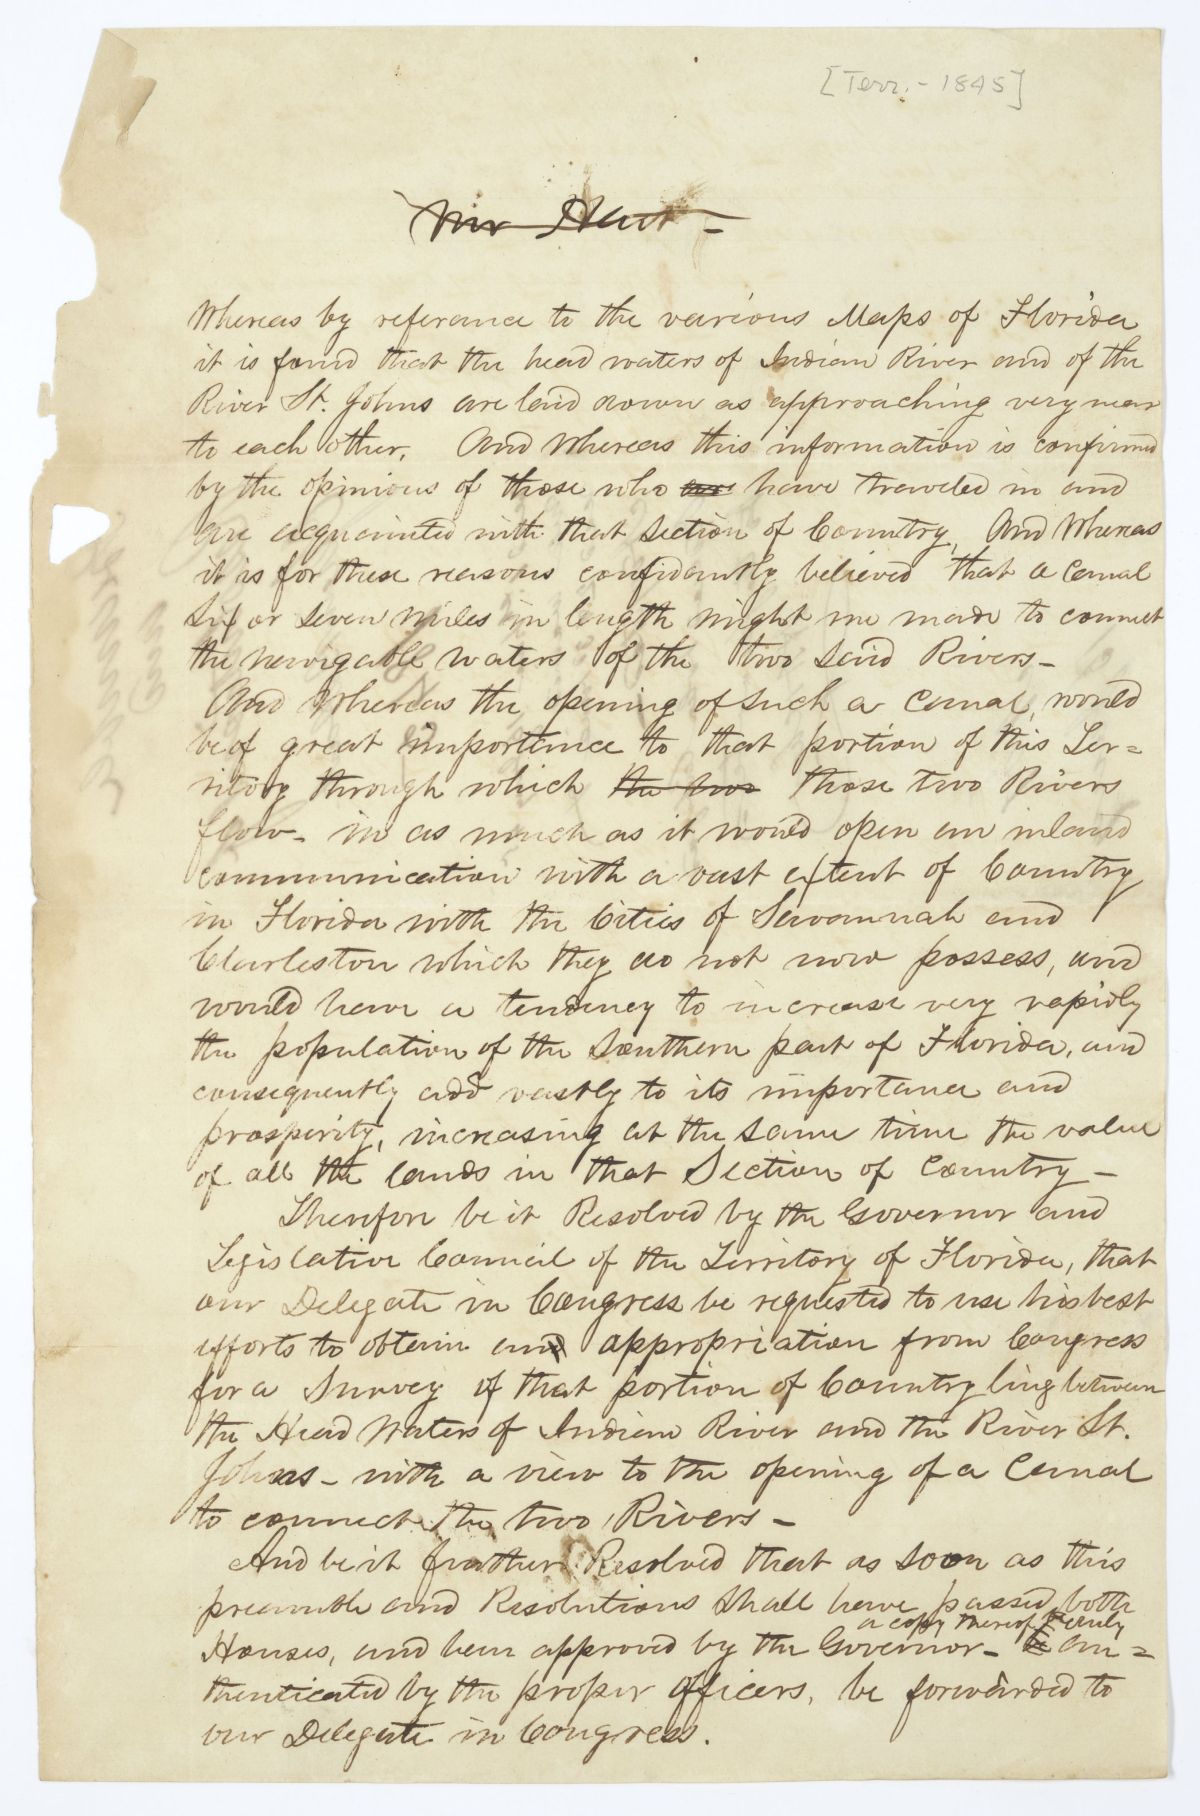 [Terr. - 1845]
Mr Hart -
Whereas by referance to the various Maps of Florida
it is found that the head waters of Indian River and of the
River St. Johns are laid down as approaching very near
to each other. And Whereas this information is confirmed
by the opinions of those who are have traveled in and
are acquainted with that section of Country, And Whereas
it is for these reasons confidantly believed that a Canal
Six or Seven Miles in length might me made to connect
the navigable waters of the two said Rivers -
And Whereas the opening of such a Canal, would
be of great importance to that portion of this Ter=
ritory through which the two those two Rivers
flow - in as much as it would open an inland
communication with a vast extent of Country
in Florida with the Cities of Savannah and
Charleston which they do not now possess, and
would have a tendency to increase very rapidly
the population of the Southern part of Florida, and
consequently add vastly to its importance and
prosperity, increasing at the same time the value
of all the lands in that Section of Country -
Therefore be it Resolved by the Governor and
Legislative Council of the Territory of Florida, that
our Delegate in Congress be requested to use his best
efforts to obtain and appropriation from Congress
for a Survey of that portion of Country ling between
the Head Waters of Indian River and the River St.
Johns - with a view to the opening of a Canal
to connect the two Rivers -
And be it further Resolved that as soon as this
preamble and Resolutions shall have passed both
Houses, and been approved by the Governor - a copy thereof duly au=
thenticated by the proper officers, be forwarded to
our Delegate in Congress.